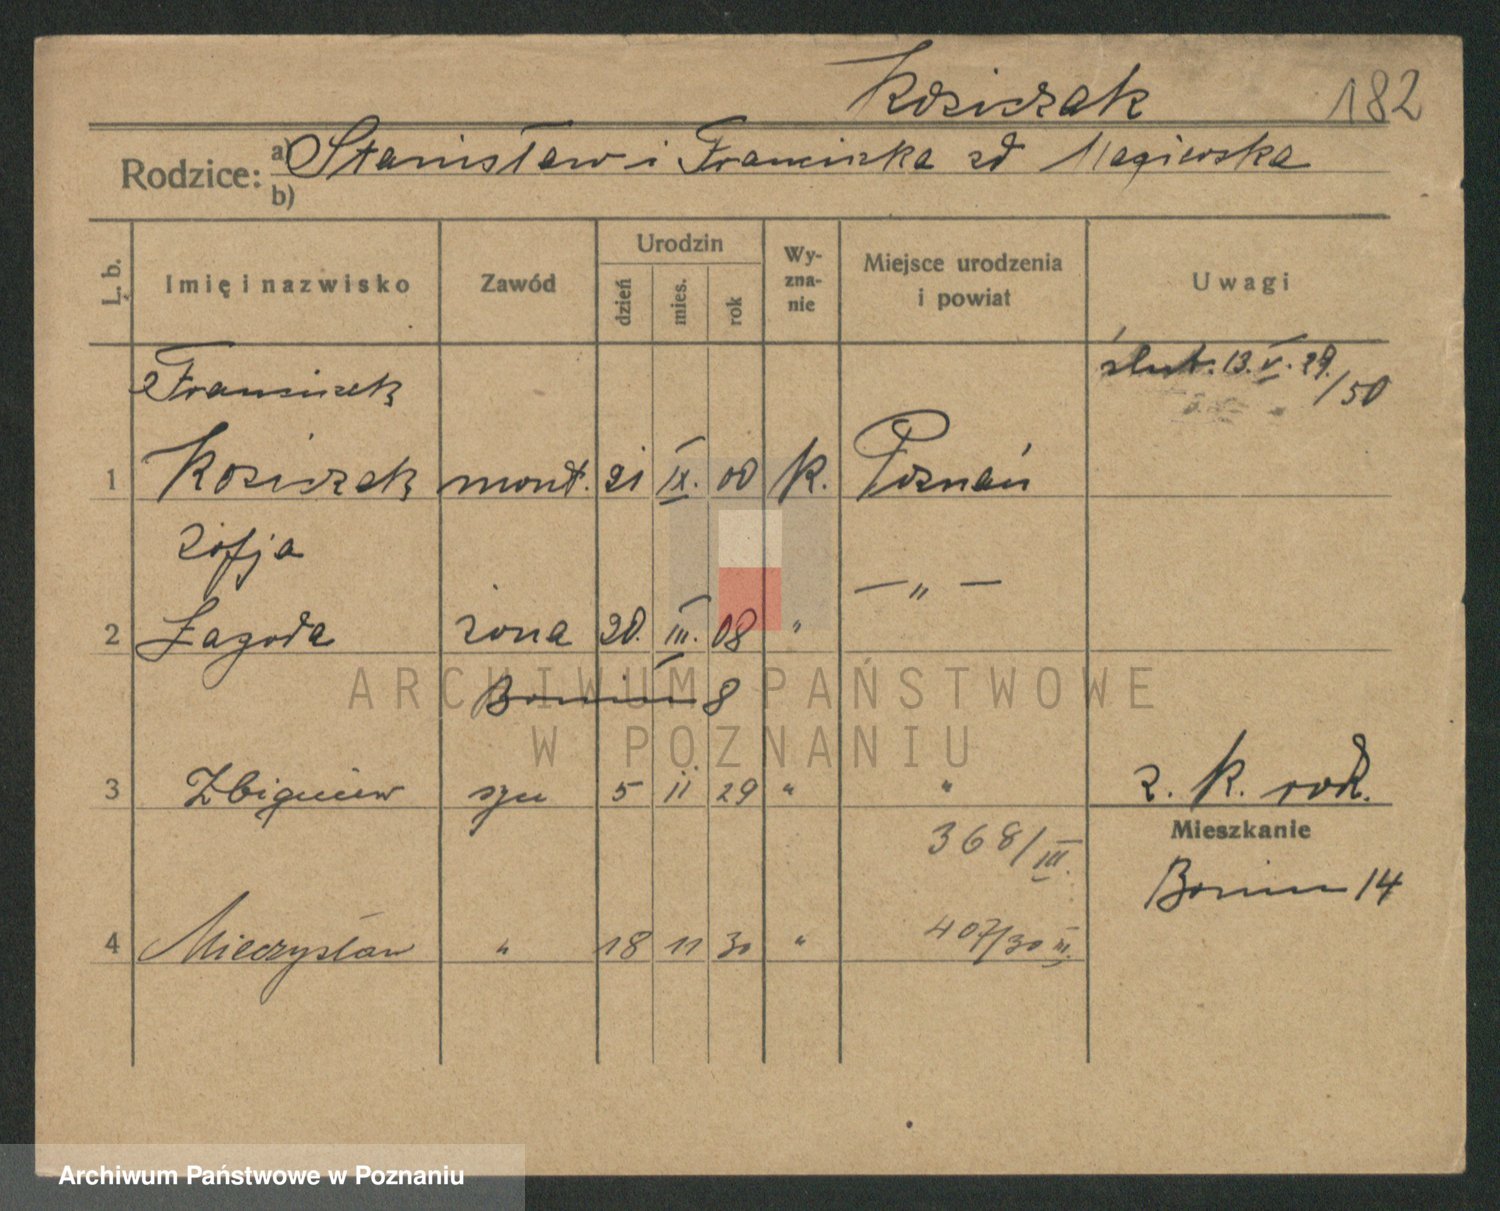 Koziczak 182
Rodzice: a) Stanisław i Franciszka zd Magiewska
b)
L. b. Imię i nazwisko Zawód Urodzin dzień mies. rok Wy-zna-nie Miejsce urodzenia i powiat Uwagi
Franciszek ślub. 13. V. 29./50
1 Koziczak mont. 21 IX. 00 K. Poznań
Zofja
2 Łagoda żona 20. III. 08 " — " —
Bonin 8
3 Zbigniew syn 5 II 29 " " z. K. rod.
368/III. Mieszkanie
Bonin 14
4 Mieczysław " 18 11 30 " 407/30 III.
ARCHIWUM PAŃSTWOWE
W POZNANIU
Archiwum Państwowe w Poznaniu